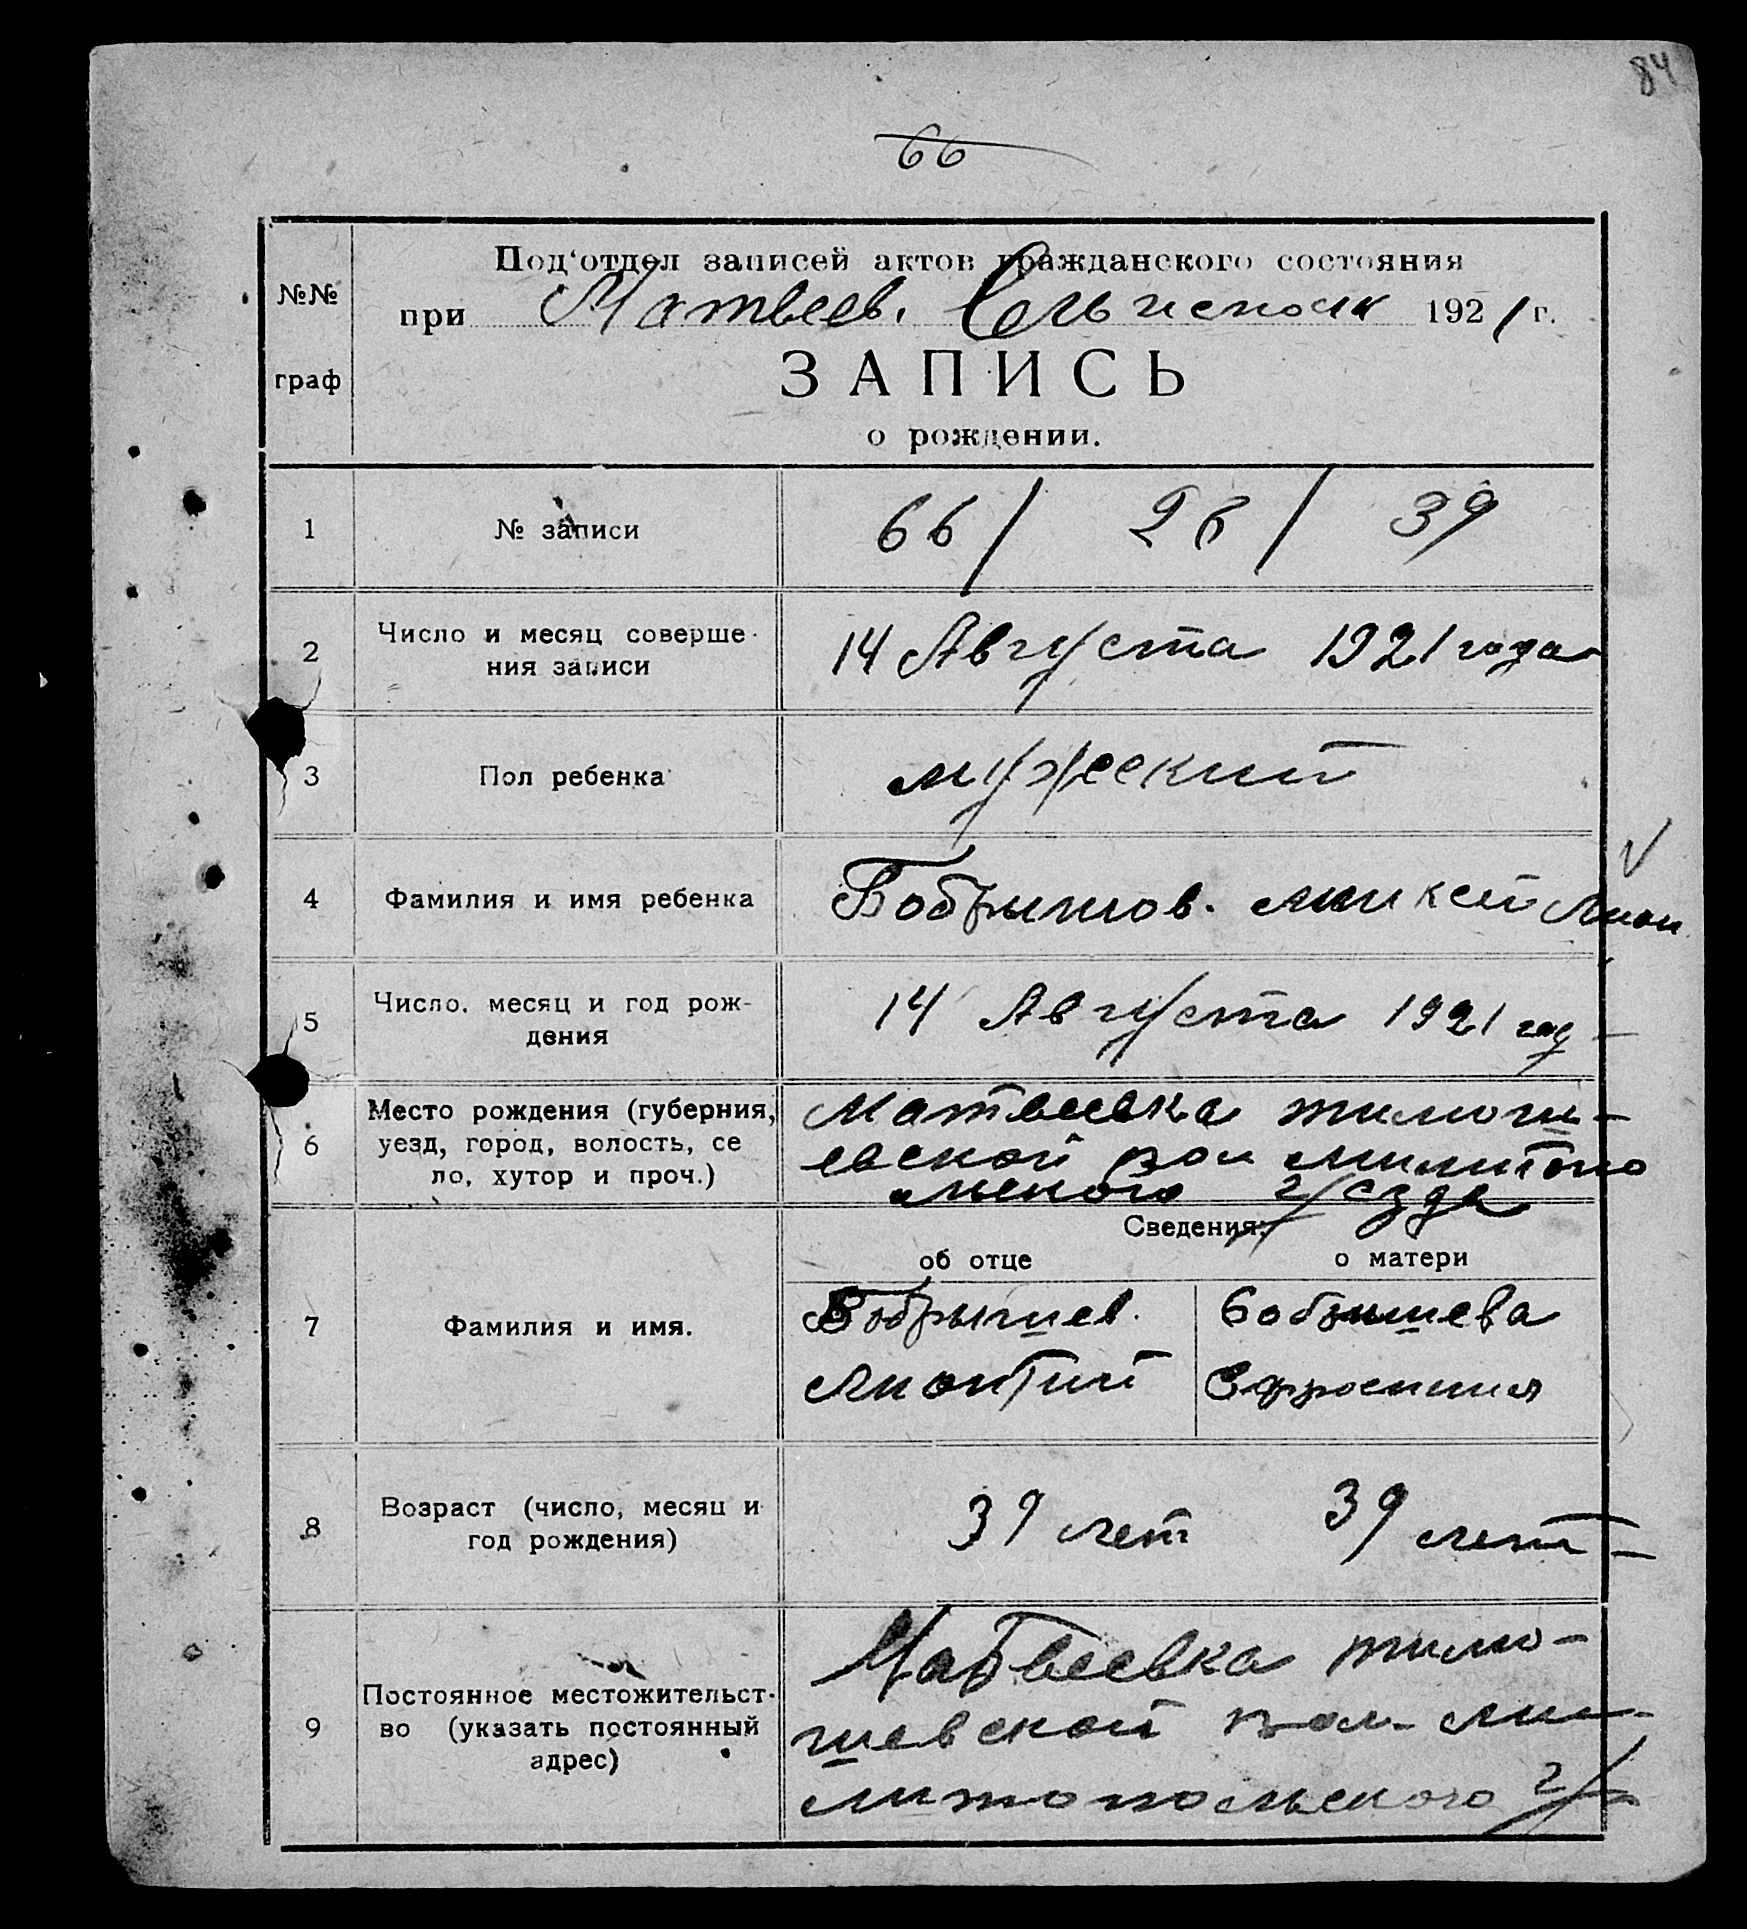 84
66
Под'отдел записей актов гражданского состояния
№№
при Матвеев. Сельисполк 1921 г.
граф
ЗАПИСЬ
о рождении.
1 № записи 66 / 26 / 39
2 Число и месяц соверше-
ния записи 14 Августа 1921 года
3 Пол ребенка мужеский
4 Фамилия и имя ребенка Бобрышов.
5 Число, месяц и год рож-
дения 14 Августа 1921 год
6 Место рождения (губерния, Матвеевка тимош-
уезд, город, волость, се евской вол милитопо
ло, хутор и проч.) льского уезда
Сведения:
об отце о матери
7 Фамилия и имя. Бобрышев. Бобрышева
Ефросиния
8 Возраст (число, месяц и
год рождения) 39 лет 39 лет
9 Постоянное местожительст- Матвеевка тимо-
во (указать постоянный шевской вол. ми-
адрес) литопольского у